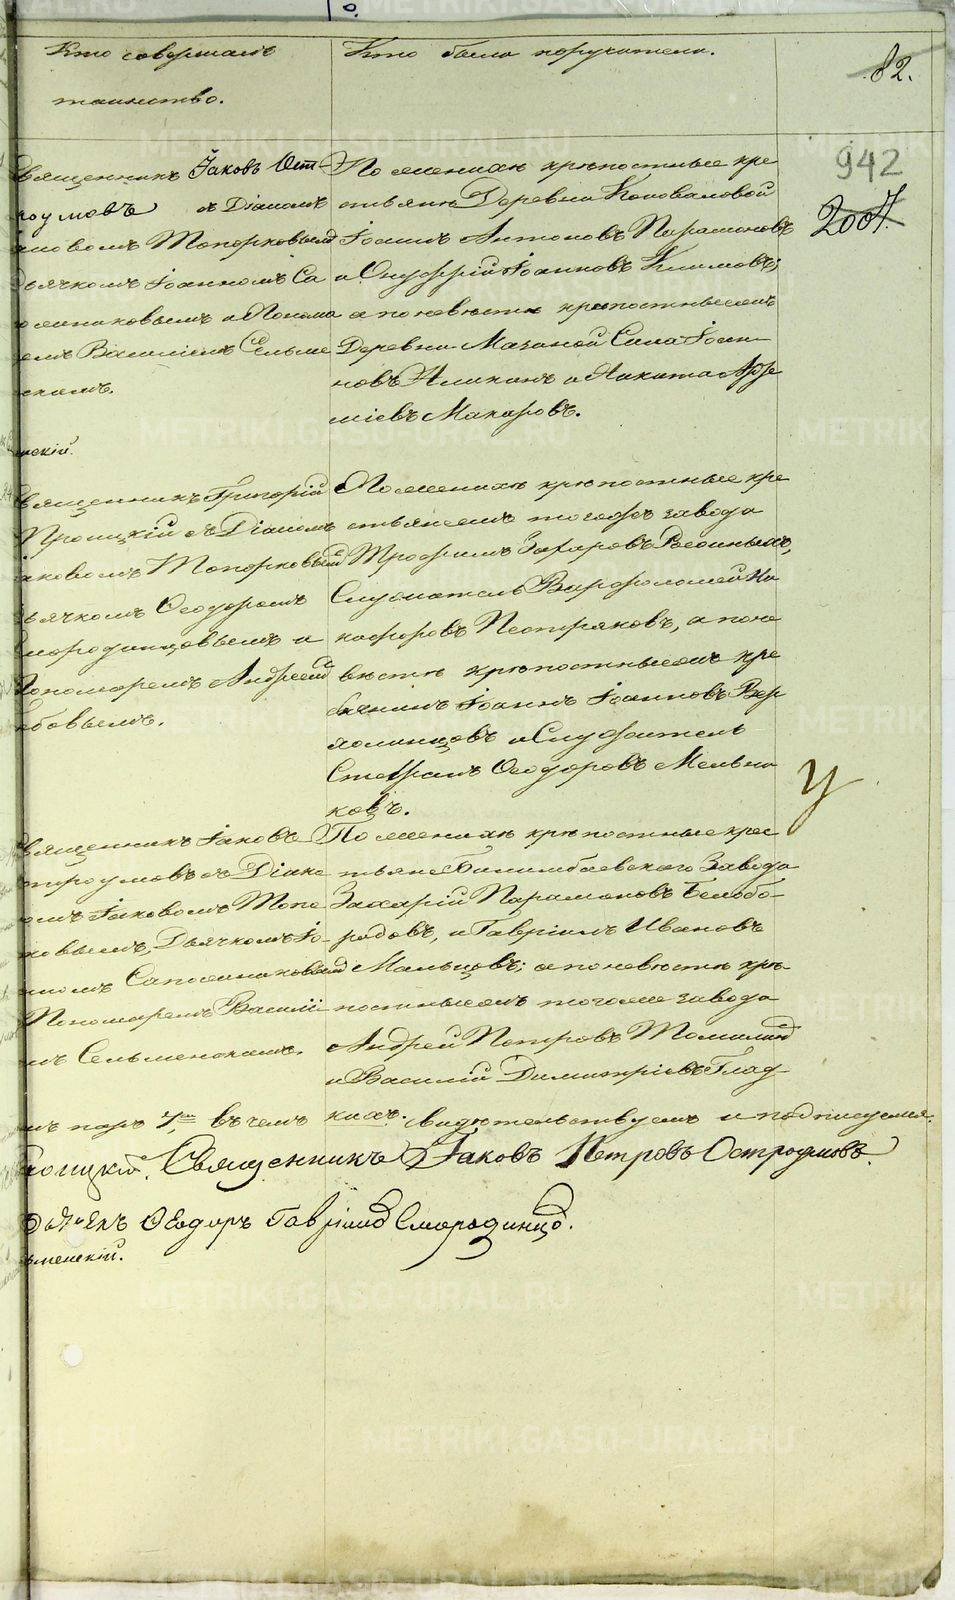 Кто совершалъ
таинство.
Кто были поручатели.
82.
942
2007.
Священникъ Іаковъ Ост-
роумовъ съ Діакономъ
Іаковомъ Топорковымъ
Дьячкомъ Іоанномъ Са
пожниковымъ и Понома
ремъ Василіемъ Сельме
нскимъ.
По женихѣ крѣпостные кре
стьяне Деревни Коноваловой
Іоаннъ Антоновъ Парамоновъ
и Онуфрій Іоанновъ Климовъ;
а по невѣстѣ крѣпостные
Деревни Мачиной Сила Іоан-
новъ и Никита Арте
міевъ Макаровъ.
нскій.
Священникъ Григорій
Троицкій съ Діакономъ
Іаковомъ Топорковымъ
Дьячкомъ Ѳеодоромъ
Смородинцовымъ и
Пономаремъ Андреемъ
бовымъ.
По женихѣ крѣпостные кре
стьяне тогоже завода
Трофимъ Захаровъ
Служитель Варфоломей Ни
кифоровъ Пестряковъ, а по не
вѣстѣ крѣпостные кре
Іоаннъ Іоанновъ Вер
холанцовъ и Служитель
Стефанъ Ѳеодоровъ Мельни
ковъ.
У
Священникъ Іаковъ
Остроумовъ съ Діако
номъ Іаковомъ Топо
рковымъ, Дьячкомъ Іо-
анномъ Сапожниковымъ
Пономаремъ Василі
емъ Сельменскимъ.
По женихѣ крѣпостные крес
тьяне Билимбаевскаго Завода
Захарій Парамоновъ Белобо-
родовъ, и Гавріилъ Ивановъ
Мальцовъ; а по невѣстѣ крѣ-
постные тогоже завода
Андрей Петровъ Томиловъ
и Василій Димитріевъ Глад-
кихъ.
паръ 7. въ чемъ свидѣтельствуемъ и подписуемся.
Троицкій. Священникъ Іаковъ Петровъ Остроумовъ.
Дьячекъ Ѳеодоръ Гавріиловъ Смородинцовъ.
ьменскій.
METRIKI.GASO-URAL.RU